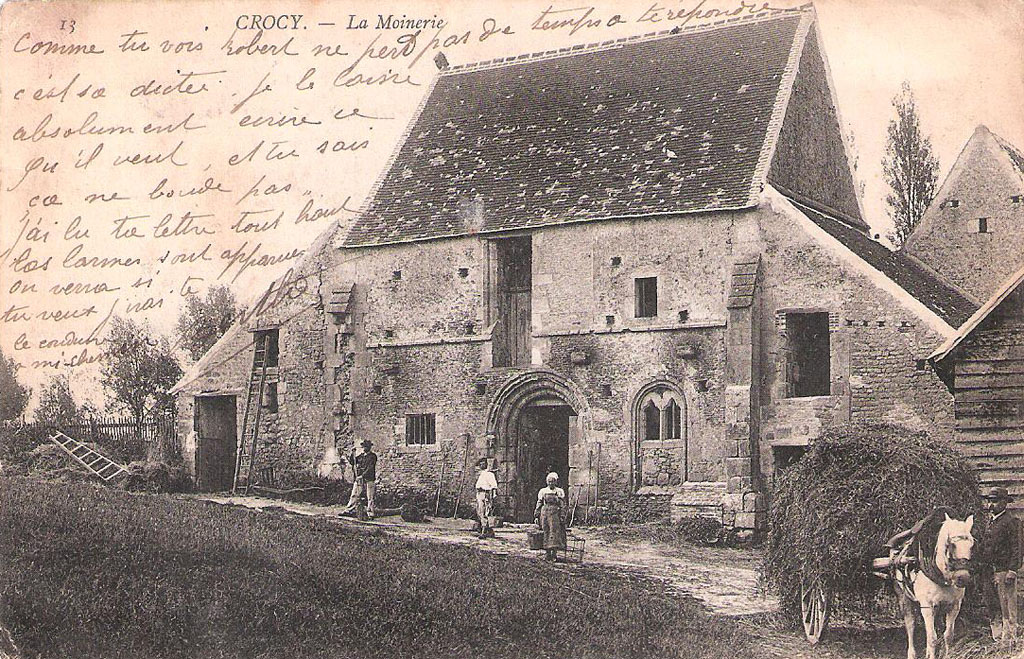 13
CROCY. — La Moinerie
Comme tu vois Robert ne perd pas de temps a te répondre
c'est sa dictée. Je le laisse
absolument écrire ce
qu'il veut, et tu sais
ça ne boude pas
j'ai lu ta lettre tout haut
les larmes sont apparues
on verra si
tu veux j'irai te
le conduire